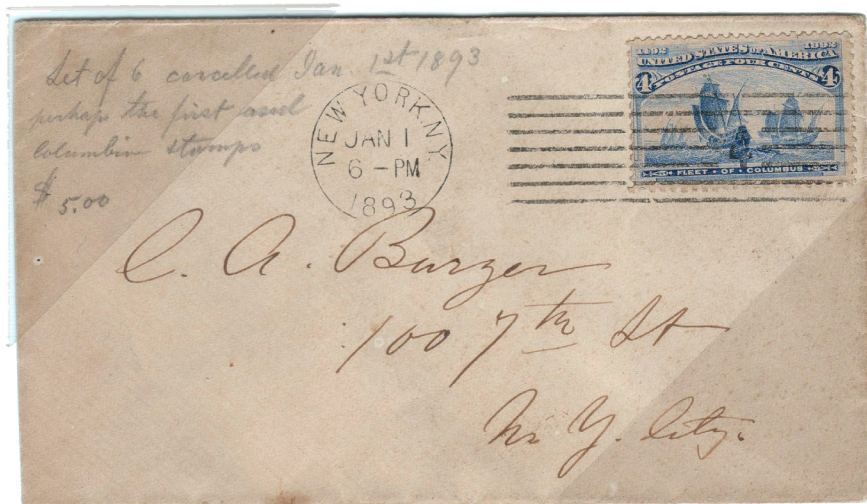 Set of 6 cancelled Jan 1st 1893
perhaps the first used
Columbian stamps
$ 5.00
NEW YORK, N.Y.
JAN 1
6 - PM
1893
1892 1892
UNITED STATES OF AMERICA
POSTAGE FOUR CENTS
4 4
4
FLEET OF COLUMBUS
C. A. Burger
100 7th St
N. Y. City.